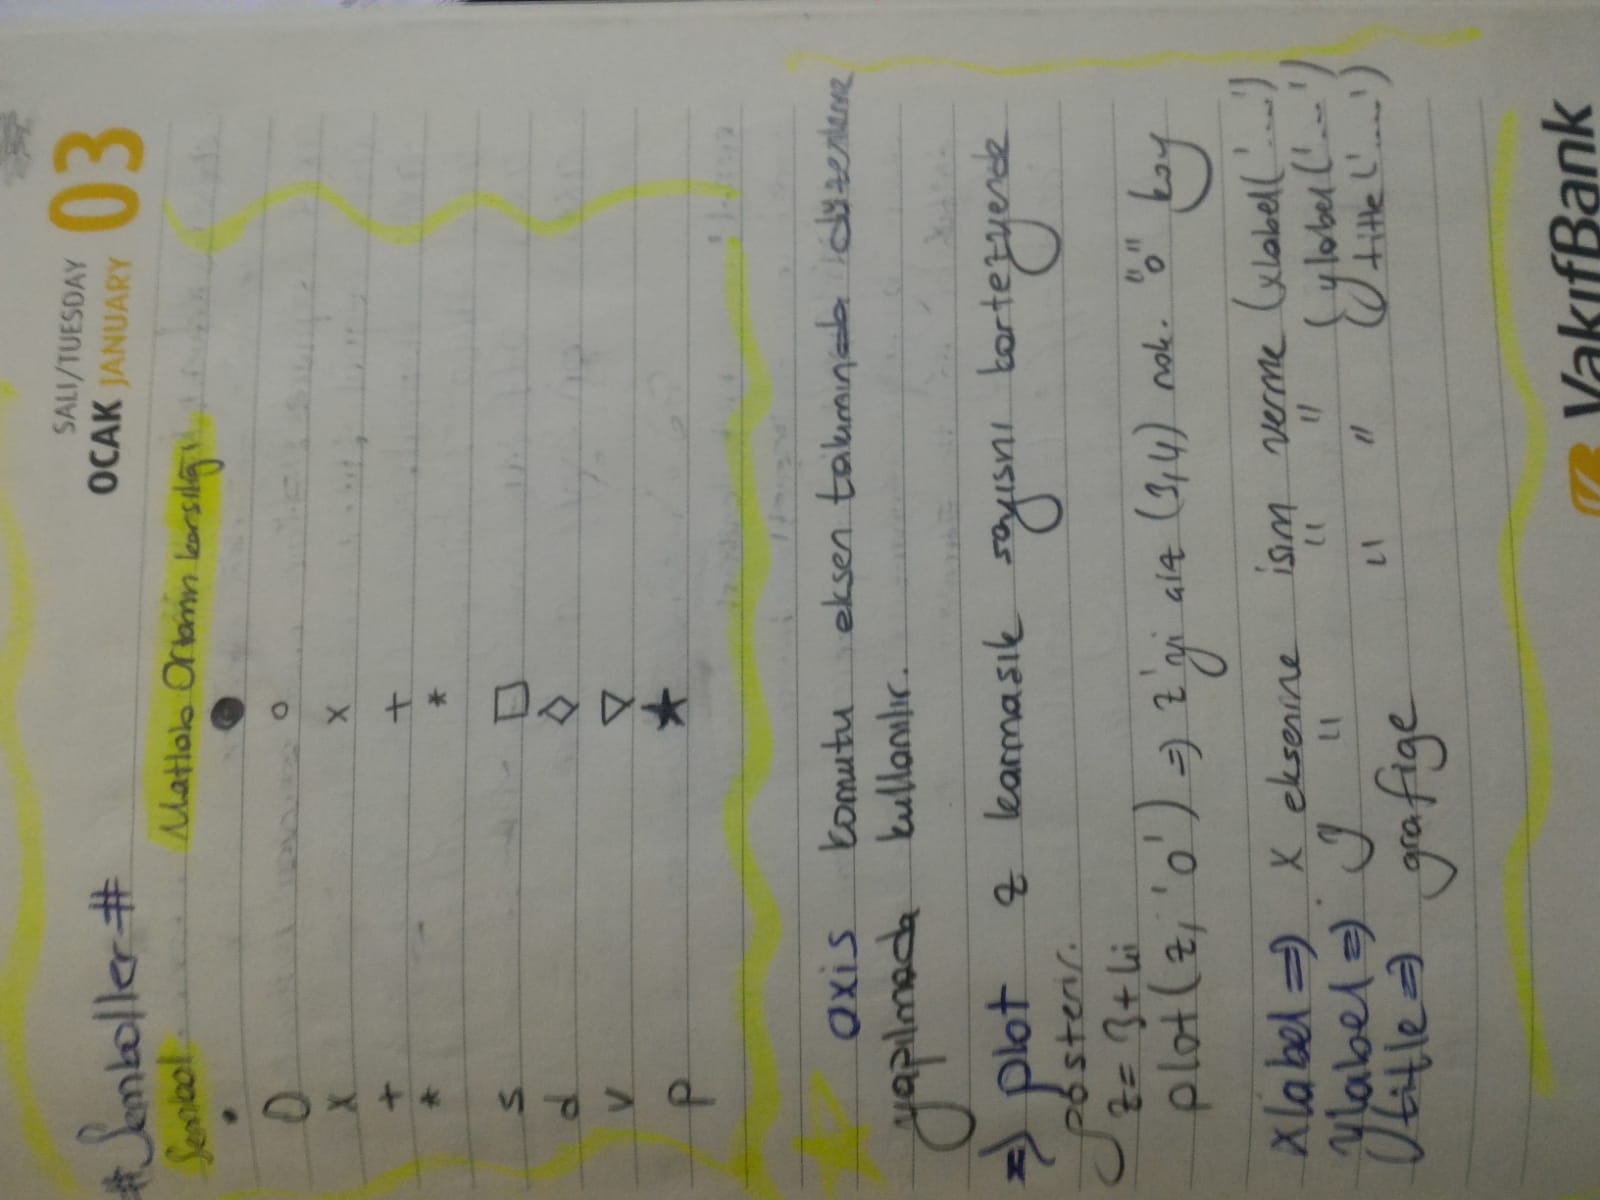 SALI/TUESDAY
OCAK JANUARY 03
# Semboller #
Sembol Matlab Ortamın karsılığı
. ●
O o
x x
+ +
* *
s □
d ◇
v ▽
p ★
axis komutu eksen takımında düzenleme
yapılmada kullanılır.
=) plot z karmasık sayısnı kartezyende
gösterir.
z = 3+4i
plot(z, 'o') =) z'yi ait (3,4) nok. "o" koy
xlabel =) x eksenine isim verme (xlabel('....')
ylabel =) y " " " (ylabel('...')
title =) grafige " " (title('....')
VakıfBank